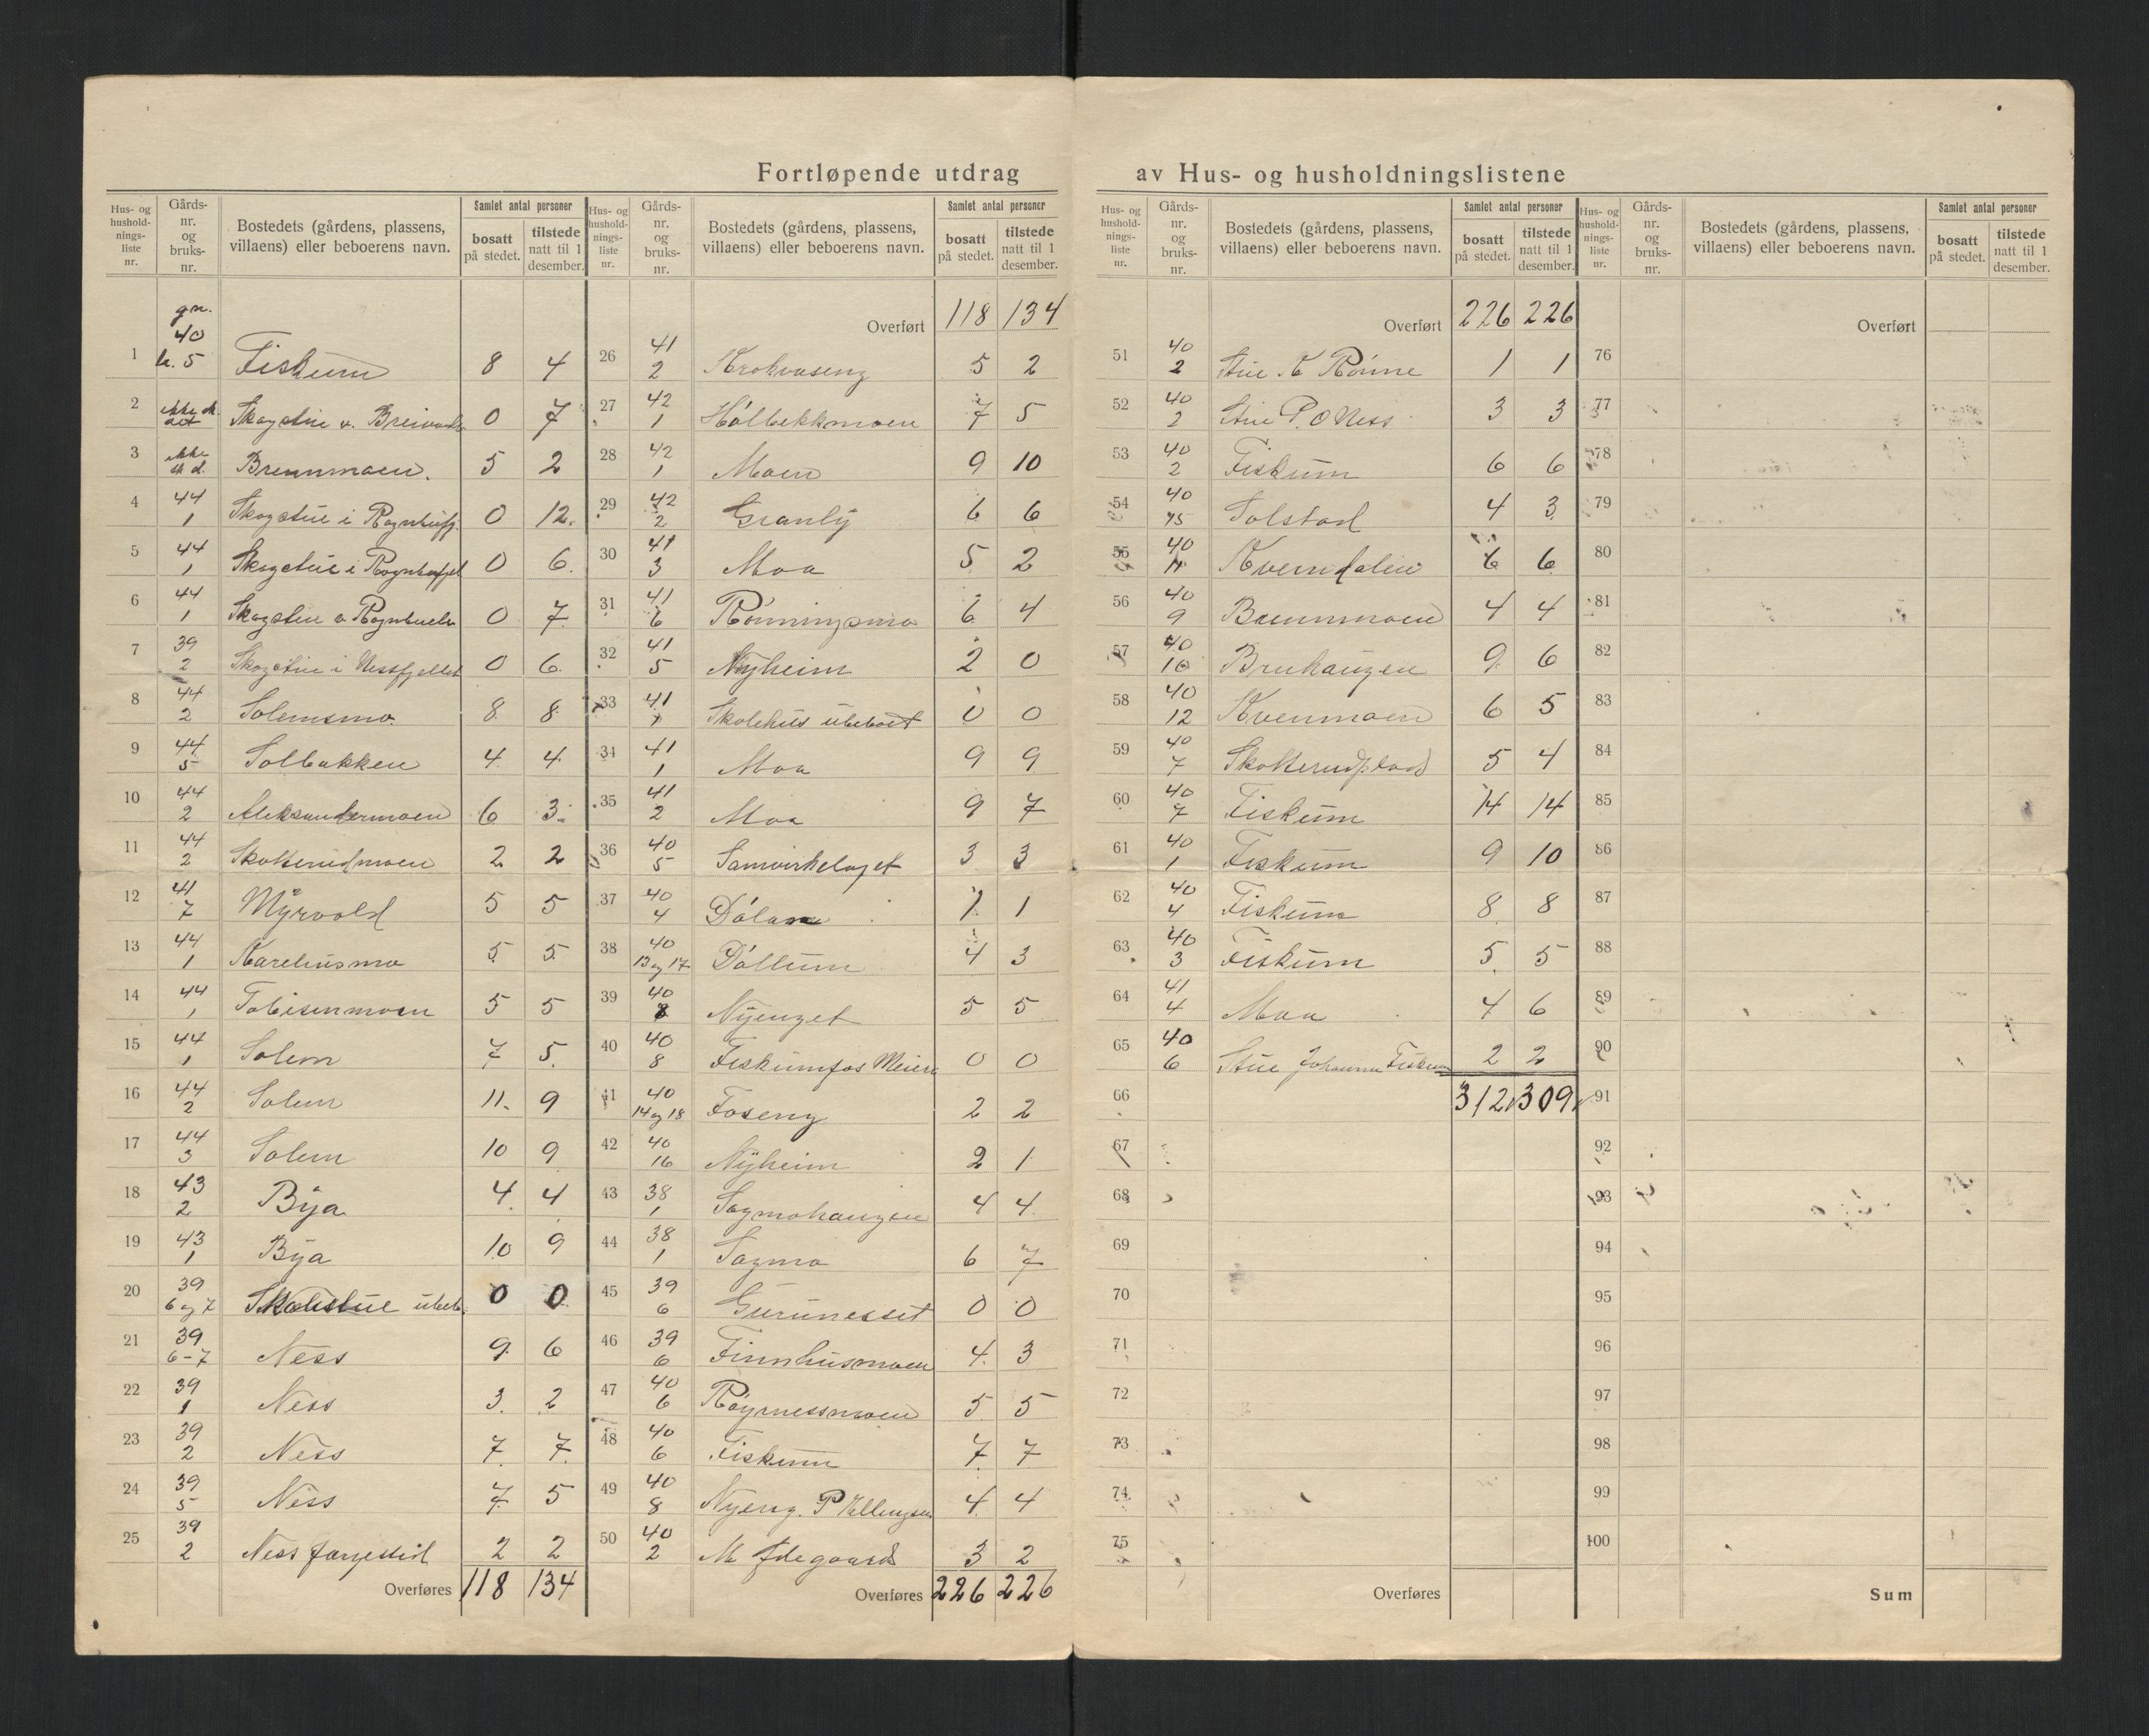 Fortløpende utdrag av Hus- og husholdningslistene
Hus- og hushold-nings-liste nr. Gårds-nr. og bruks-nr. Bostedets (gårdens, plassens, villaens) eller beboerens navn. Samlet antal personer bosatt på stedet. tilstede natt til 1 desember.
gn.
1 40 b. 5 Fiskum 8 4
2 Skogstue v. 0 7
3 ikke Brennmoen. 5 2
4 44 1 Skogstue i 0 12.
5 44 1 Skogstue i 0 6.
6 44 1 Skogstue v 0 7
7 39 2 Skogstue i Nessfjellet 0 6.
8 44 2 Solemsmo 8 8
9 44 5 Solbakken 4 4
10 44 2 Aleksandermoen 6 3
11 44 2 Skotterudmoen 2 2
12 41 7 Myrvold 5 5
13 44 1 Kareliusmo 5 5
14 44 1 Tobiesenmoen 5 5
15 44 1 Solem 7 5.
16 44 2 Solem 11. 9
17 44 3 Solem 10 9
18 43 2 Bya 4 4
19 43 1 Bya 10 9
20 39 6 og 7 Skolestue ubeb. 0 0
21 39 6-7 Ness 9 6
22 39 1 Ness 3 2
23 39 2 Ness 7 7
24 39 5 Ness 7 5
25 39 2 Ness 2 2
Overføres 118 134
Hus- og hushold-nings-liste nr. Gårds-nr. og bruks-nr. Bostedets (gårdens, plassens, villaens) eller beboerens navn. Samlet antal personer bosatt på stedet. tilstede natt til 1 desember.
Overført 118 134
26 41 2 Krokvaseng 5 2
27 42 1 Hølbekkmoen 7 5
28 42 1 Moen 9 10
29 42 2 Granly 6 6
30 41 3 Moa 5 2
31 41 6 Rønningsmo 6 4
32 41 5 Nyheim 2 0
33 41 Skolehus ubeboet 0 0
34 41 1 Moa 9 9
35 41 2 Moa 9 7
36 40 5 Samvirkelaget 3 3
37 40 4 1 1
38 40 13 og 17 Døllum 4 3
39 40 8 Nyenget 5 5
40 40 8 Fiskumfos Meieri 0 0
41 40 14 og 18 Foseng 2 2
42 40 16 Nyheim 2 1
43 38 1 Sagmohaugen 4 4
44 38 1 Sagmo 6 7
45 39 6 Gurunesset 0 0
46 39 6 Finnhusmoen 4 3
47 40 6 Røyrnessmoen 5 5
48 40 6 Fiskum 7 7
49 40 8 Nyeng. P Ellingsen 4 4
50 40 2 M Ødegaard 3 2
Overføres 226 226
Hus- og hushold-nings-liste nr. Gårds-nr. og bruks-nr. Bostedets (gårdens, plassens, villaens) eller beboerens navn. Samlet antal personer bosatt på stedet. tilstede natt til 1 desember.
Overført 226 226
51 40 2 Stue K Rønne 1 1
52 40 2 Stue P. O Ness 3 3
53 40 2 Fiskum 6 6
54 40 15 Solstad 4 3
55 40 11 Kverndalen 6 6
56 40 9 Brennmoen 4 4
57 40 10 Bruhaugen 9 6
58 40 12 Kvenmoen 6 5
59 40 7 Skotterudplads 5 4
60 40 7 Fiskum 14 14
61 40 1 Fiskum 9 10
62 40 4 Fiskum 8 8
63 40 3 Fiskum 5 5
64 41 4 Moa 4 6
65 40 6 Stue Johanna Fiskum 2 2
66 312 309
67
68
69
70
71
72
73
74
75
Overføres
Hus- og hushold-nings-liste nr. Gårds-nr. og bruks-nr. Bostedets (gårdens, plassens, villaens) eller beboerens navn. Samlet antal personer bosatt på stedet. tilstede natt til 1 desember.
Overført
76
77
78
79
80
81
82
83
84
85
86
87
88
89
90
91
92
93
94
95
96
97
98
99
100
Sum